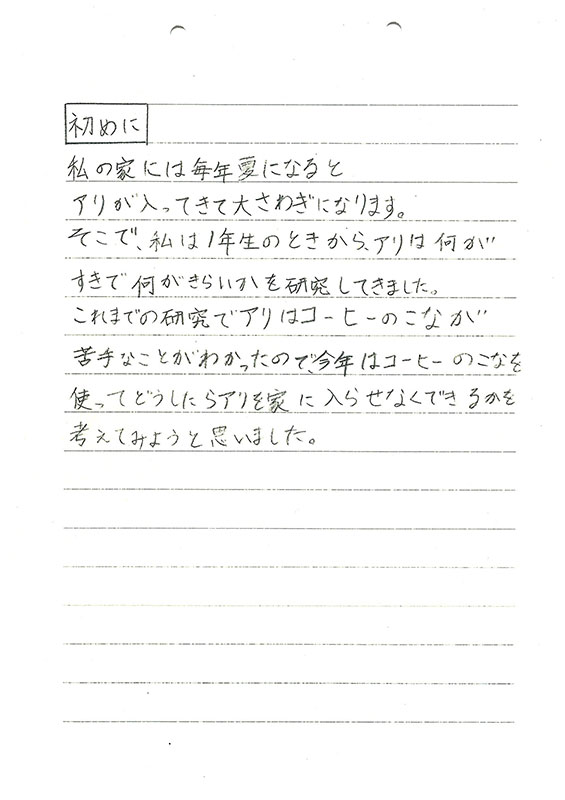 初めに
私の家には毎年夏になると
アリが入ってきて大さわぎになります。
そこで、私は1年生のときから、アリは何が
すきで何がきらいかを研究してきました。
これまでの研究でアリはコーヒーのこなが
苦手なことがわかったので、今年はコーヒーのこなを
使ってどうしたらアリを家に入らせなくできるかを
考えてみようと思いました。